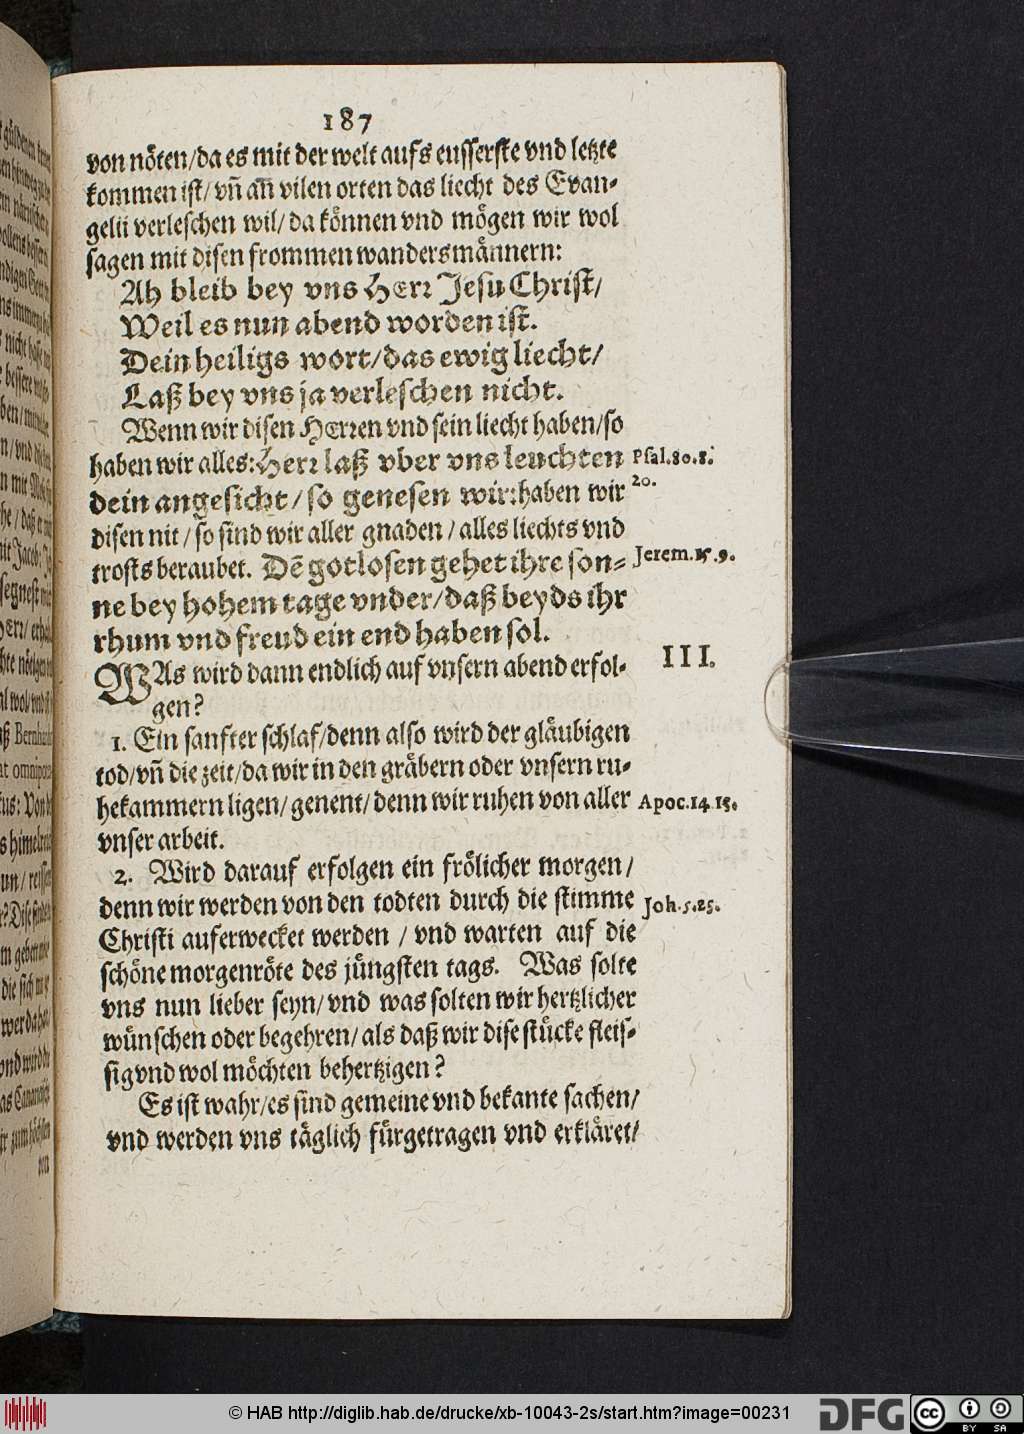 187
von nöten/da es mit der welt aufs eusserste vnd letzte
kommen ist/ vñ añ vilen orten das liecht des Evan-
gelii verleschen wil/ da können vnd mögen wir wol
sagen mit disen frommen wandersmännern:
Ah bleib bey vns HErr Jesu Christ/
Weil es nun abend worden ist.
Dein heiligs wort/das ewig liecht/
Laß bey vns ja verleschen nicht.
Wenn wir disen HErren vnd sein liecht haben/so
haben wir alles: Herr laß vber vns leuchten
Psal.80.8.
dein angesicht/ so genesen wir: haben wir
20.
disen nit/ so sind wir aller gnaden/ alles liechts vnd
trosts beraubet. Dẽ gotlosen gehet ihre son-
Jerem.15.9.
ne bey hohem tage vnder/daß beyds ihr
rhum vnd freud ein end haben sol.
WAs wird dann endlich auf vnsern abend erfol-
III.
gen?
1. Ein sanfter schlaf/denn also wird der gläubigen
tod/vñ die zeit/da wir in den gräbern oder vnsern ru-
hekammern ligen/ genent/denn wir ruhen von aller
Apoc.14.15.
vnser arbeit.
2. Wird darauf erfolgen ein frölicher morgen/
denn wir werden von den todten durch die stimme
Joh.5.25.
Christi auferwecket werden / vnd warten auf die
schöne morgenröte des jüngsten tags. Was solte
vns nun lieber seyn/vnd was solten wir hertzlicher
wünschen oder begehren/als daß wir dise stücke fleis-
sig vnd wol möchten behertzigen?
Es ist wahr/es sind gemeine vnd bekante sachen/
vnd werden vns täglich fürgetragen vnd erkläret/
© HAB http://diglib.hab.de/drucke/xb-10043-2s/start.htm?image=00231
DFG
cc BY SA